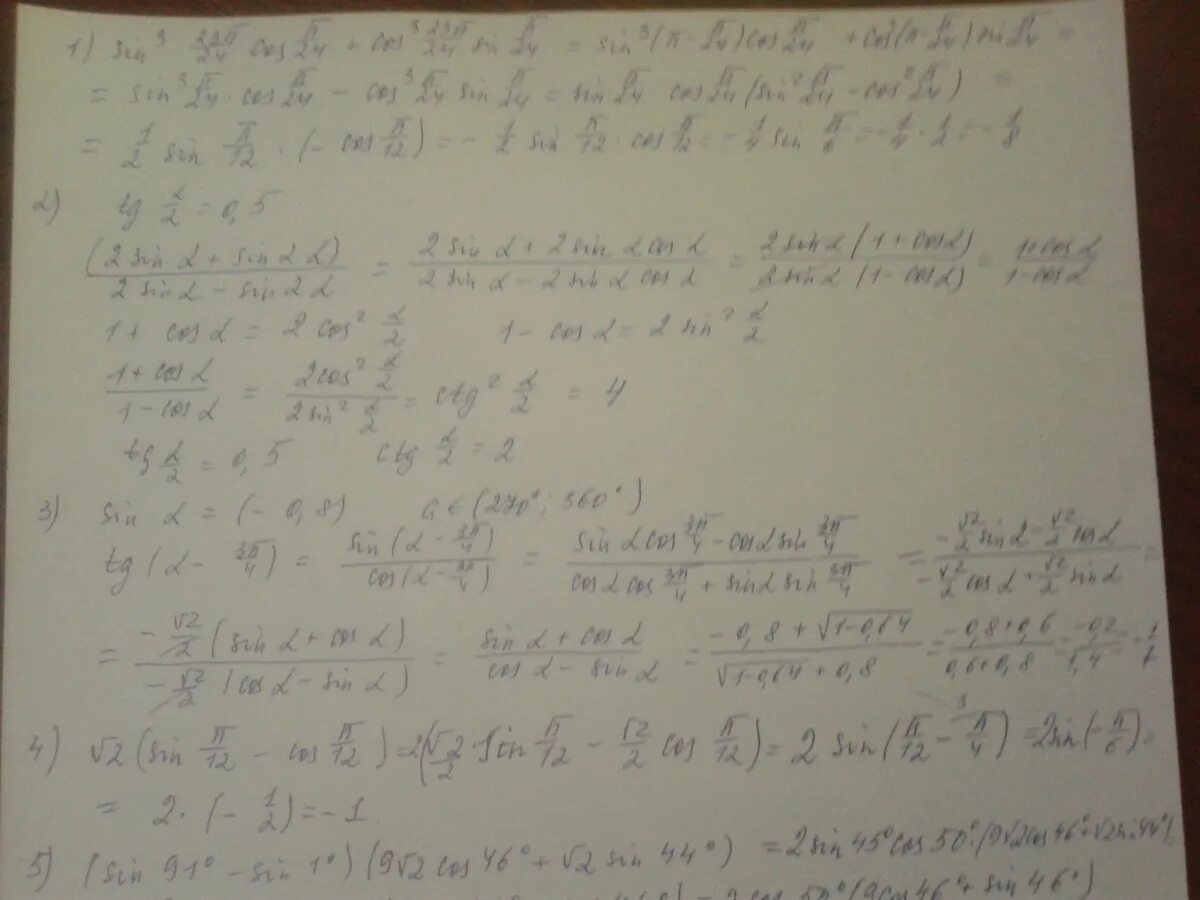 1) sin³ 23π/24 cos π/24 + cos³ 23π/24 sin π/24 = sin³(π - π/24) cos π/24 + cos³(π - π/24) sin π/24 =
= sin³ π/24 · cos π/24 - cos³ π/24 sin π/24 = sin π/24 cos π/24 (sin² π/24 - cos² π/24) =
= 1/2 sin π/12 · (- cos π/12) = - 1/2 sin π/12 · cos π/12 = - 1/4 sin π/6 = - 1/4 · 1/2 = - 1/8
2) tg α/2 = 0,5
(2 sin α + sin 2α)/(2 sin α - sin 2α) = (2 sin α + 2 sin α cos α)/(2 sin α - 2 sin α cos α) = (2 sin α (1 + cos α))/(2 sin α (1 - cos α)) = (1 + cos α)/(1 - cos α)
1 + cos α = 2 cos² α/2 1 - cos α = 2 sin² α/2
(1 + cos α)/(1 - cos α) = (2 cos² α/2)/(2 sin² α/2) = ctg² α/2 = 4
tg α/2 = 0,5 ctg α/2 = 2
3) sin α = (- 0,8) α ∈ (270°; 360°)
tg (α - 3π/4) = sin(α - 3π/4)/cos(α - 3π/4) = (sin α cos 3π/4 - cos α sin 3π/4)/(cos α cos 3π/4 + sin α sin 3π/4) = (-√2/2 sin α - √2/2 cos α)/(-√2/2 cos α + √2/2 sin α) =
= (-√2/2 (sin α + cos α))/(-√2/2 (cos α - sin α)) = (sin α + cos α)/(cos α - sin α) = (-0,8 + √(1-0,64))/(√(1-0,64) + 0,8) = (-0,8 + 0,6)/(0,6 + 0,8) = -0,2/1,4 = -1/7
4) √2 (sin π/12 - cos π/12) = 2(√2/2 sin π/12 - √2/2 cos π/12) = 2 sin(π/12 - π/4) = 2 sin(- π/6) =
= 2 · (- 1/2) = - 1.
5) (sin 91° - sin 1°)(9√2 cos 46° + √2 sin 44°) = 2 sin 45° cos 50° · (9√2 cos 46° + √2 sin 44°)
= 2 cos 50° (9 cos 46° + sin 46°)